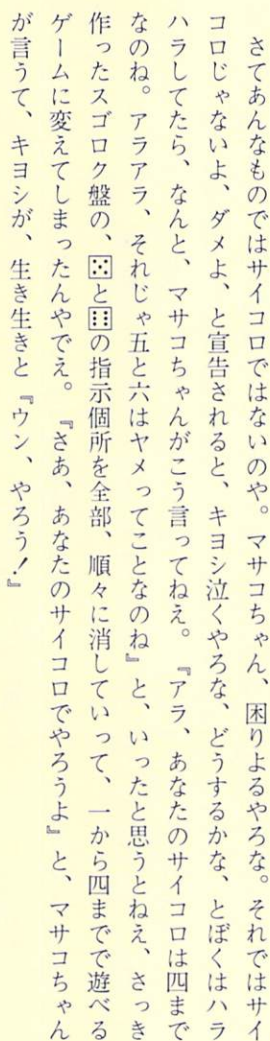 さてあんなものではサイコロではないのや。マサコちゃん、困りよるやろな。それではサイ
コロじゃないよ、ダメよ、と宣告されると、キヨシ泣くやろな、どうするかな、とぼくはハラ
ハラしてたら、なんと、マサコちゃんがこう言ってねえ。『アラ、あなたのサイコロは四まで
なのね。アラアラ、それじゃ五と六はヤメってことなのね』と、いったと思うとねえ、さっき
作ったスゴロク盤の、⚄と⚅の指示個所を全部、順々に消していって、一から四までで遊べる
ゲームに変えてしまったんやでえ。『さあ、あなたのサイコロでやろうよ』と、マサコちゃん
が言うて、キヨシが、生き生きと『ウン、やろう！』